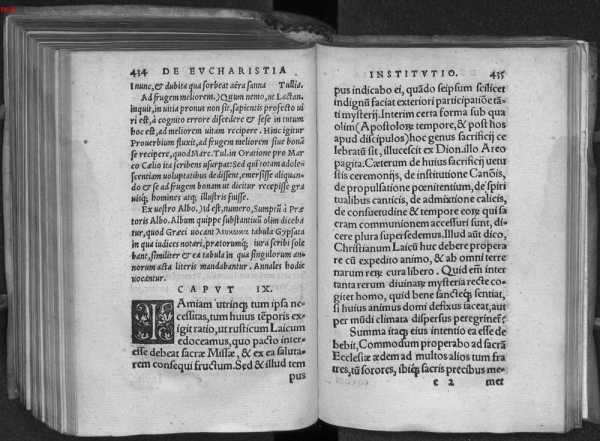 434 DE EVCHARISTIA
I nunc, & dubita qua sorbeat aëra sanna Tullia.
Ad frugem meliorem.) Quum nemo, ut Lactan.
inquit, in uitia pronus non sit, sapientis profecto ui
ri est, à cognito errore discedere & sese in totum
hoc est, ad meliorem uitam recipere. Hinc igitur
Prouerbium fluxit, ad frugem meliorem siue bonā
se recipere, quod Marc. Tul. in Oratione pro Mar
co Cælio ita scribens usurpat: Sed qui totam adole-
scentiam uoluptatibus dedissent, emersisse aliquan-
do & se ad frugem bonam ut dicitur recepisse gra
uisq́; homines atq; illustris fuisse.
Ex uestro Albo.) Id est, numero, Sumptū à Præ
toris Albo. Album quippe substantiuū olim diceba
tur, quod Græci uocant tabula Gypsata
in qua iudices notāri, prætorumq́; iura scribi sole
bant, similiter & ea tabula in qua singulorum an-
norum acta literis mandabantur. Annales hodie
uocantur.
CAPVT IX.
TAmiam utrinq; tum ipsa ne-
cessitas, tum huius tēporis ex
igit ratio, ut rusticum Laicum
edoceamus, quo pacto inter-
esse debeat sacræ Missæ, & ex ea saluta-
rem consequi fructum. Sed & illud tem
pus
INSTITVTIO. 435
pus indicabo ei, quādo seipsum scilicet
indignū faciat exteriori participatiōe tā-
ti mysterij. Interim certa forma sub qua
olim (Apostolorū tempore, & post hos
apud discipulos) hoc genus sacrificij ce
lebratū sit, illucescit ex Dion. illo Areo
pagita. Cæterum de huius sacrificij uetu
stis ceremonijs, de institutione Canōis,
de propulsatione pœnitentium, de spiri
tualibus canticis, de admixtione calicis,
de consuetudine & tempore eorū qui sa
cram communionem accessuri sunt, di-
cere plura supersedemus. Illud aūt dico,
Christianum Laicū huc debere propera
re cū expedito animo, & ab omni terre
narum rerū cura libero. Quid em̄ inter
tanta rerum diuinarū mysteria recte co-
giret homo, quid bene sancteq́; sentiat,
si huius animus domi defixus iaceat, aut
per mūdi climata dispersus peregrinet?
Summa itaq; eius intentio ea esse de
bebit, Commodum properabo ad sacrā
Ecclesiæ ædem ad multos alios tum fra
tres, tū sorores, ibiq́; sacris precibus me-
e 2 met